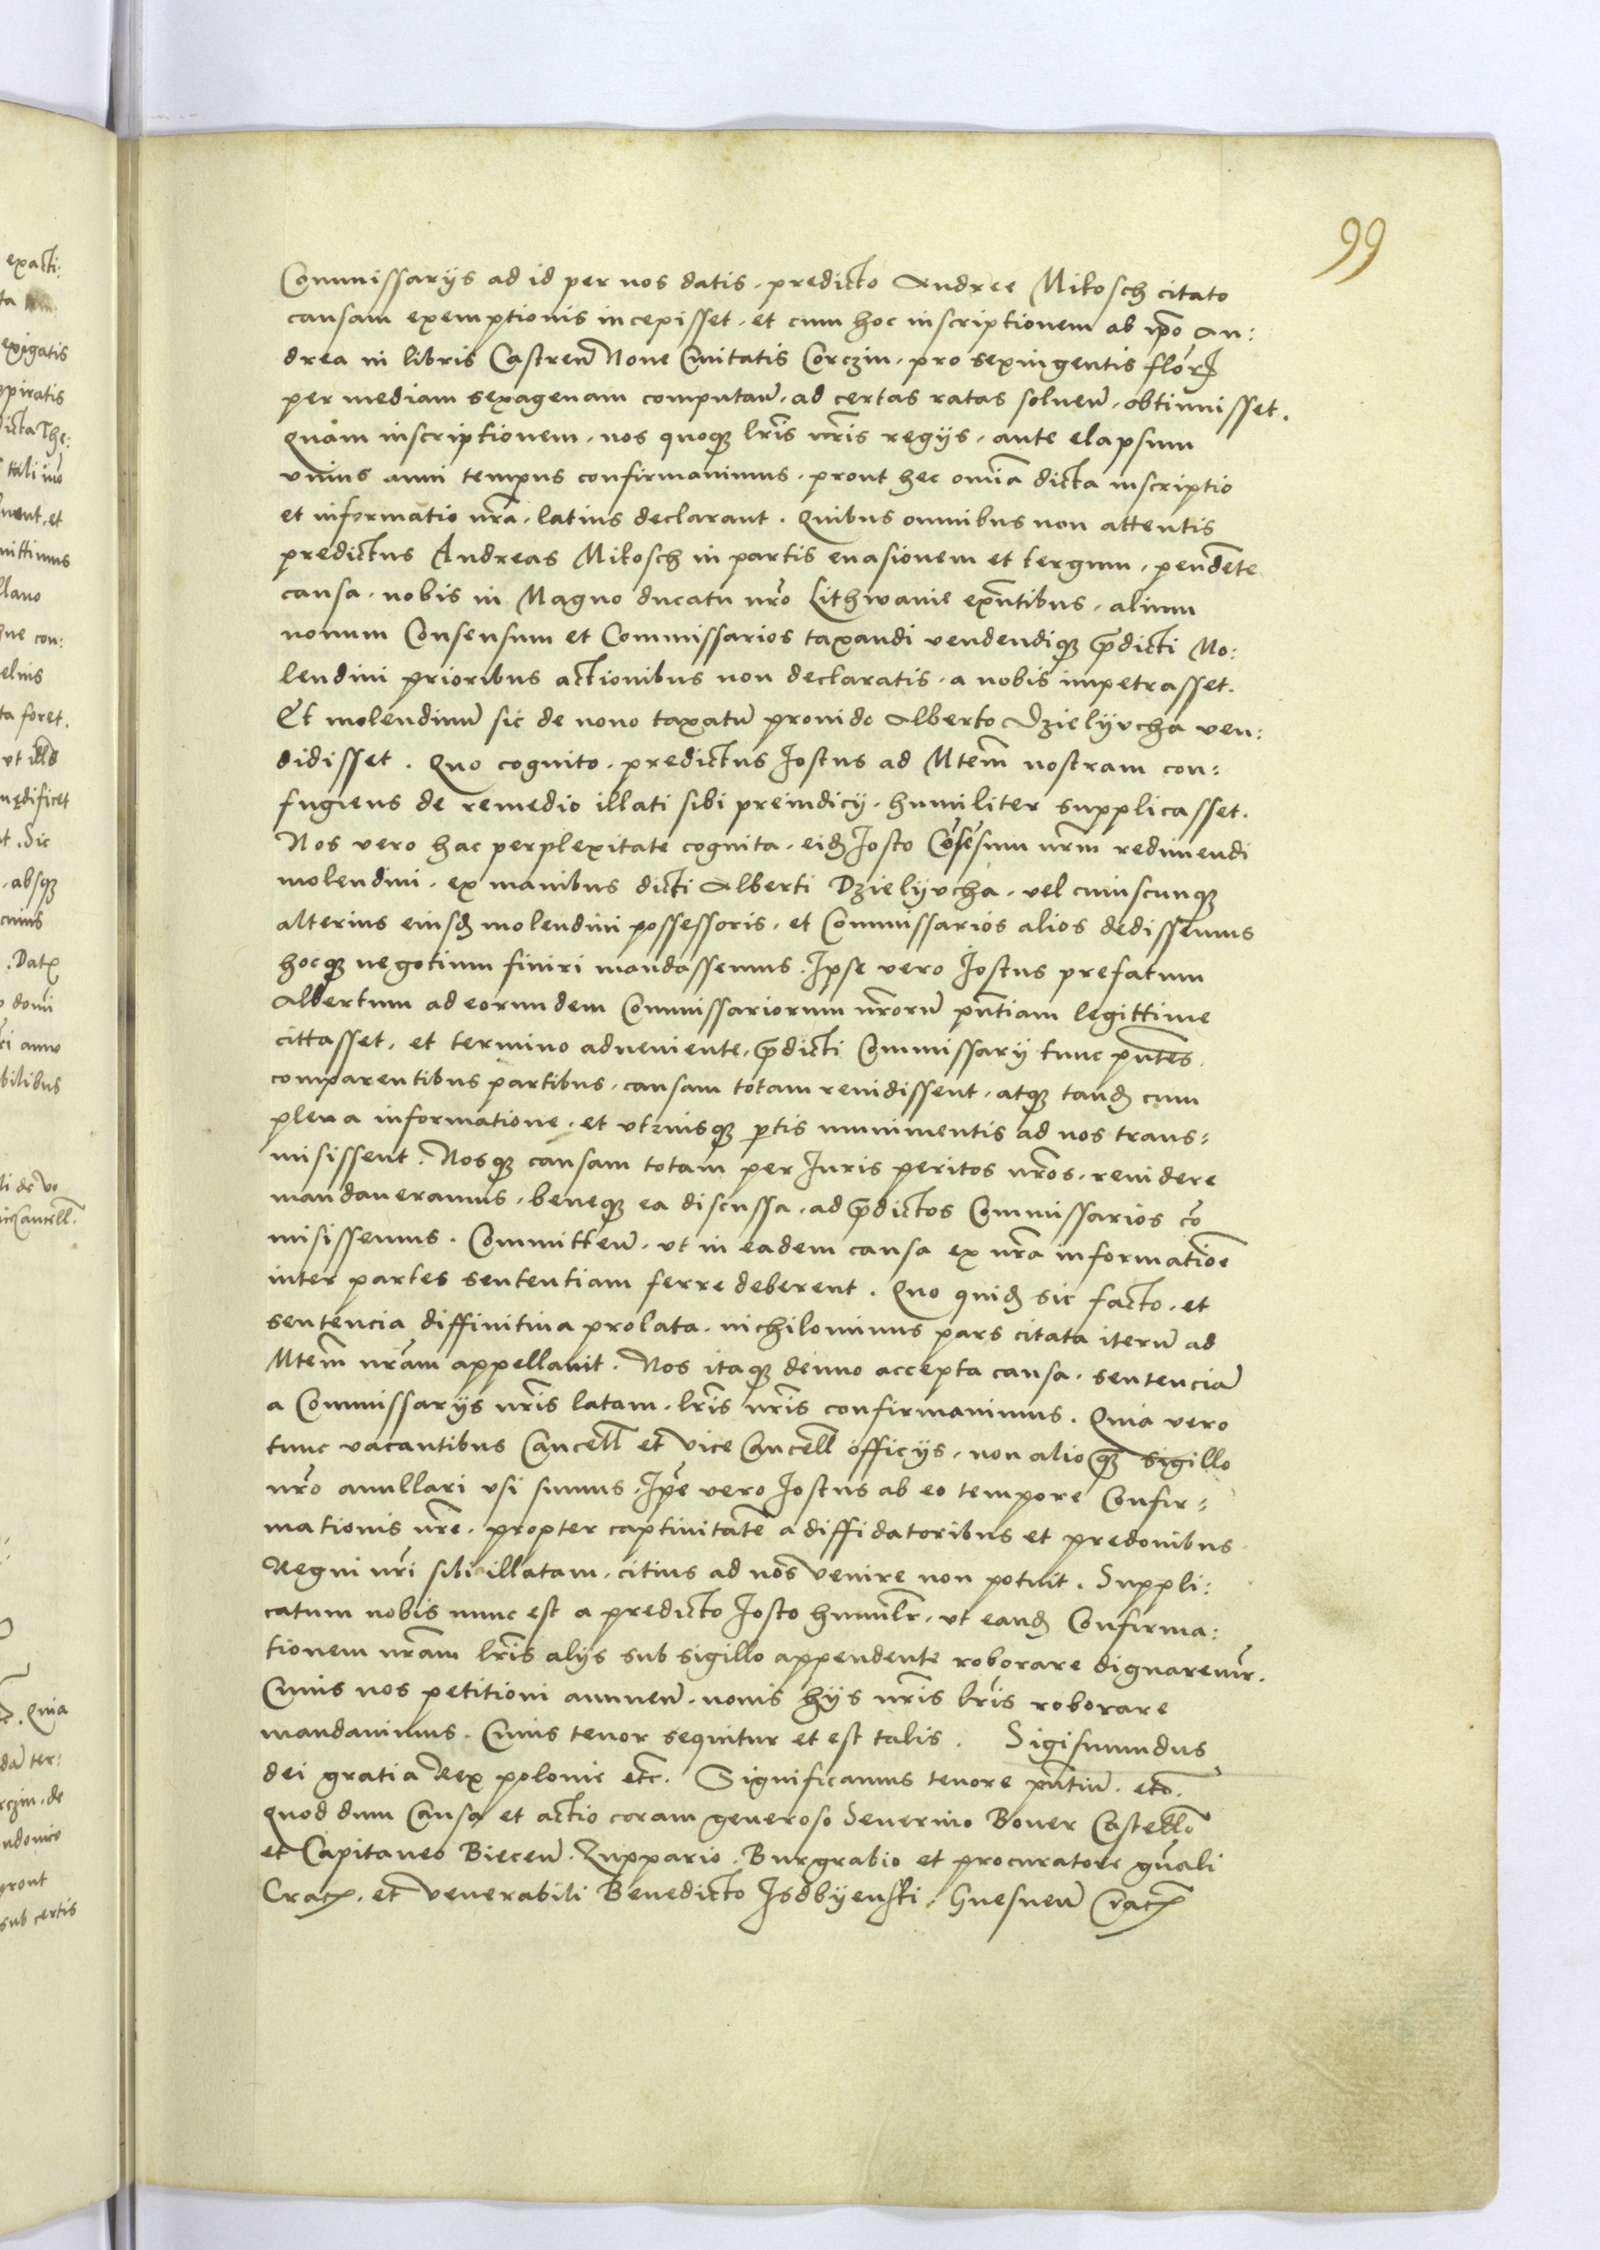 99
Commissarijs ad id per nos datis. predicto Andree Mikosch citato
causam exemptionis incepisset. et cum hoc inscriptionem ab ip̄o An:
drea in libris Castren̄ Noue Ciuitatis Corczin. pro sexingentis flor̄
per mediam sexagenam computan̄. ad certas ratas soluen̄. obtinuisset.
Quam inscriptionem. nos quoq̨ lr̄is nr̄is regijs. ante elapsum
vnius anni tempus confirmauimus. prout hec om̄ia dicta inscriptio
et informatio nr̄a. latius declarant. Quibus omnibus non attentis
predictus Andreas Mikosch in partis euasionem et tergum. pendēte
causa. nobis in Magno ducatu nr̄o Lithwanie exn̄tibus. alium
nouum Consensum et Commissarios taxandi vendendiq̨ p̄dicti Mo:
lendini prioribus actionibus non declaratis. a nobis impetrasset.
Et molendinū sic de nouo taxatū prouido Alberto Dzielijvcha ven:
didisset. Quo cognito. predictus Jostus ad Mtem̄ nostram con:
fugiens de remedio illati sibi preiudicij. humiliter supplicasset.
Nos vero hac perplexitate cognita. eid̨ Josto Cōsēsum nr̄m redimendi
molendini. ex manibus dicti Alberti Dzielijvcha. vel cuiuscunq̨
alterius eiusd̨ molendini possessoris. et Commissarios alios dedissemus
hocq̨ negotium finiri mandassemus. Ipse vero Jostus prefatum
Albertum ad eorundem Commissariorum nr̄orū pn̄tiam legittime
cittasset. et termino adueniente. p̄dicti Commissarij tunc pn̄tes.
comparentibus partibus. causam totam reuidissent. atq̨ tand̨ cum
plena informatione. et vtriusq̨ ptis munimentis ad nos trans:
misissent. Nosq̨ causam totam per Iuris peritos nr̄os. reuidere
mandaueramus. beneq̨ ea discussa. ad p̄dictos Commissarios cō
misissemus. Committen̄. vt in eadem causa ex nr̄a informatiōe
inter partes sententiam ferre deberent. Quo quid̨ sic facto. et
sentencia diffinitiua prolata. nichilominus pars citata iterū ad
Mtem̄ nr̄am appellauit. Nos itaq̨ denuo accepta causa. sentenciā
a Commissarijs nr̄is latam. lr̄is nr̄is confirmauimus. Quia vero
tunc vacantibus Cancell̄ et vice Cancell̄ officijs. non alio q̨ sigillo
nr̄o anullari vsi sumus. Ip̄e vero Jostus ab eo tempore Confir:
mationis nr̄e. propter captiuitatē a diffidatoribus et predonibus
Regni nr̄i sibi illatam. citius ad nos venire non potuit. Suppli:
catum nobis nunc est a predicto Josto humilr̄. vt eand̨ Confirma:
tionem nr̄am lr̄is alijs sub sigillo appendente roborare dignaremr̄.
Cuius nos petitioni annuen̄. nouis hijs nr̄is lr̄is roborare
mandauimus. Cuius tenor sequitur et est talis. Sigismundus
dei gratia Rex polonie etc. Significamus tenore pn̄tiū. etc.
Quod dum Causa et actio coram generoso Seuerino Boner Castellō
et Capitaneo Biecen̄. Zuppario. Burgrabio et procuratore gn̄ali
Crac̄. et venerabili Benedicto Isdbijenski. Gnesnen̄ Crac̄
exacti:
exigatis
dicta The:
ta foret.
absq̨
cuius
domi
anno
Quia
ter:
de
prout
sub certis